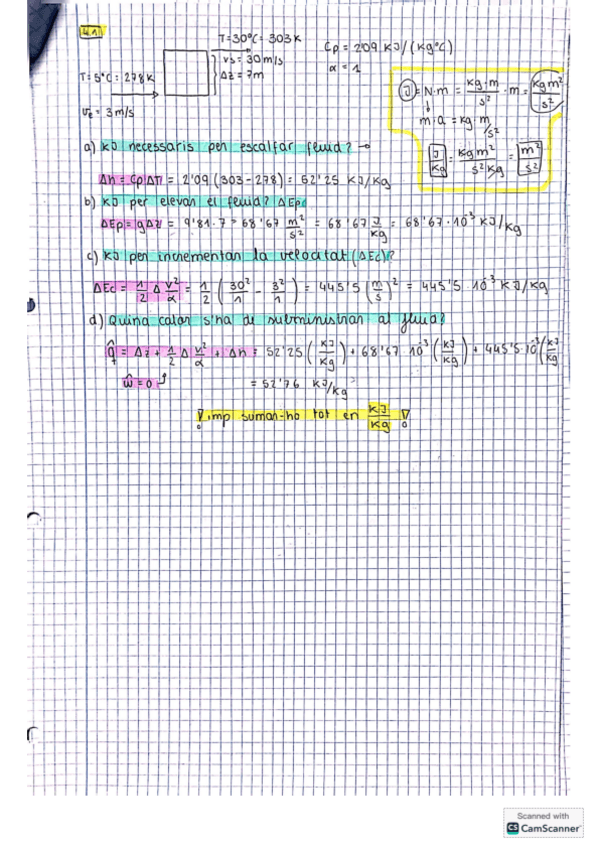 4.1
T=30ºC= 303K
Cp = 2'09 KJ/(Kg°C)
vs = 30m/s
α = 1
Δz = 7m
T= 5°C = 278K
ve = 3m/s
J = N·m = kg·m/s² · m = kg m²/s²
m·a = kg·m/s²
J/Kg = kg m²/s² kg = m²/s²
a) KJ necessaris per escalfar fluid?
Δh = CpΔT = 2'09 (303-278) = 52'25 KJ/Kg
b) KJ per elevar el fluid? ΔEp
ΔEp = gΔz = 9'81·7 = 68'67 m²/s² = 68'67 J/kg = 68'67·10⁻³ KJ/kg
c) KJ per incrementar la velocitat (ΔEc)?
ΔEc = 1/2 Δ v²/α = 1/2 (30²/1 - 3²/1) = 445'5 (m/s)² = 445'5·10⁻³ KJ/kg
d) Quina calor s'ha de subministrar al fluid?
q̂ = Δz + 1/2 Δ v²/α + Δh = 52'25 (KJ/Kg) + 68'67·10⁻³ (KJ/Kg) + 445'5·10⁻³ (KJ/Kg
ŵ = 0
= 52'76 KJ/kg
¡ imp sumar-ho tot en KJ/Kg !
Scanned with
CS CamScanner